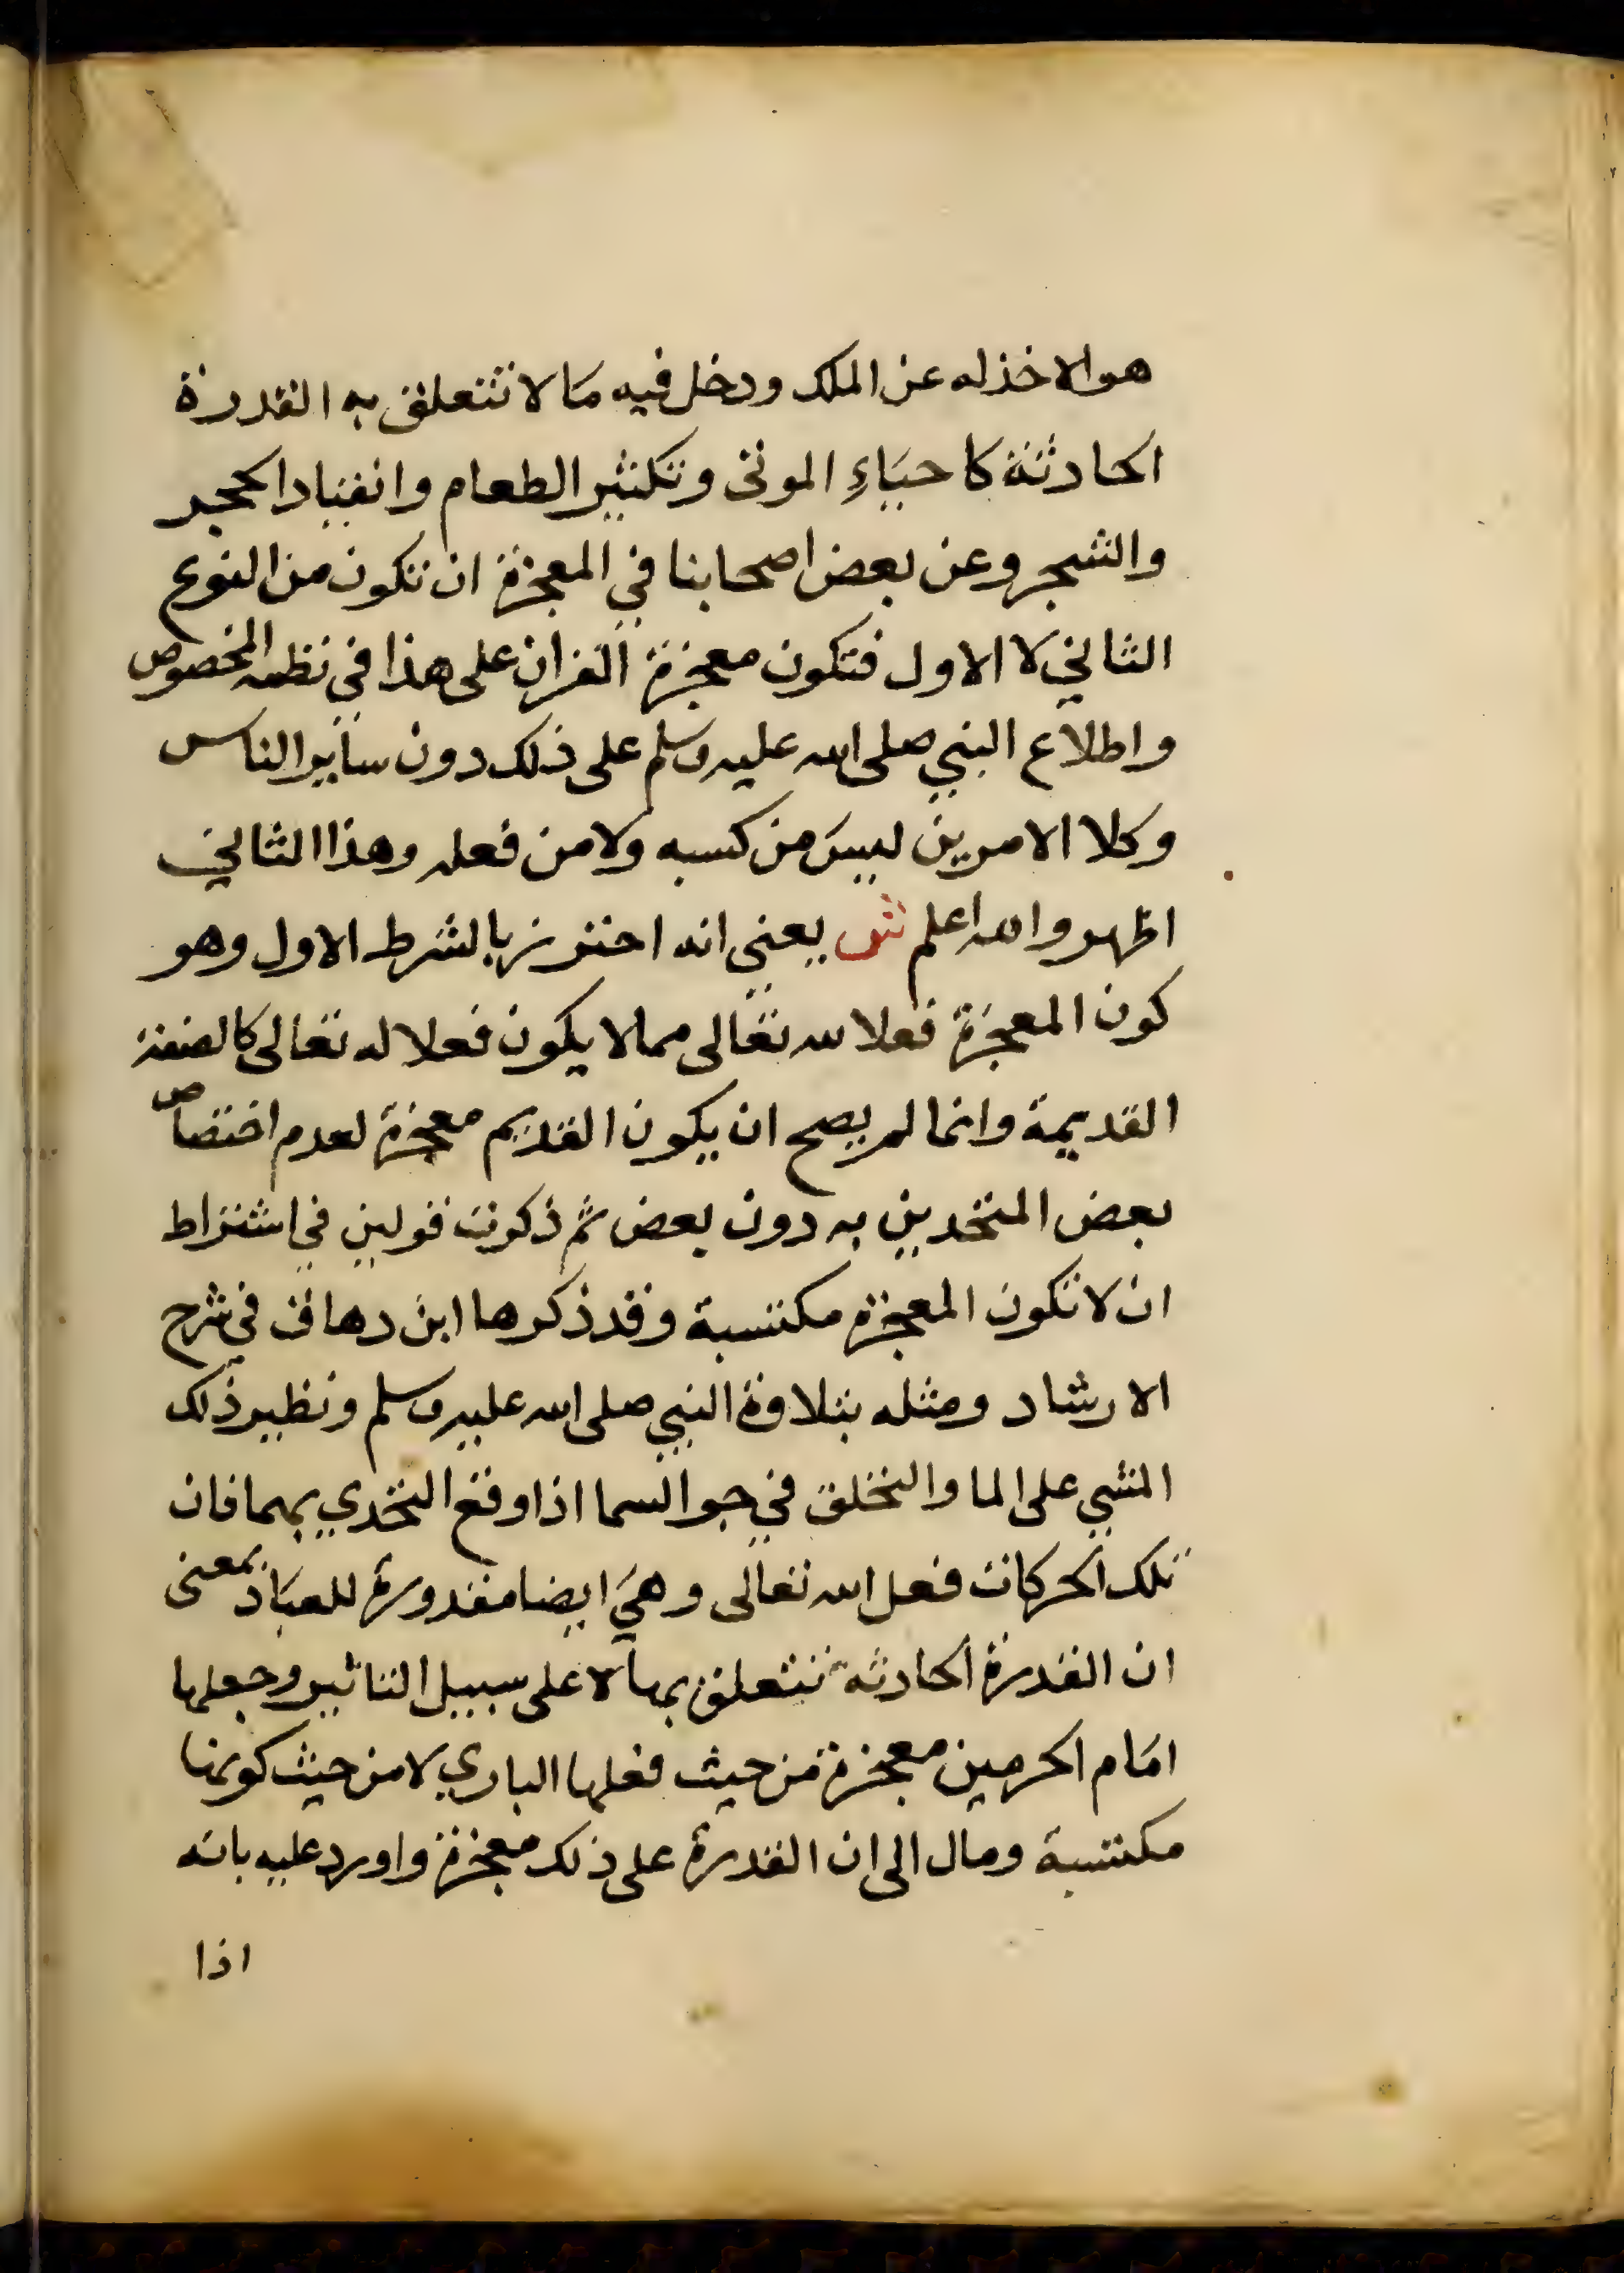 هو الاخذ له عن الملك ودخل فيه ما لا تتعلق به القدرة
الحادثة كاحياءِ الموتى وتكثير الطعام وانقياد الحجر
والشجر وعن بعض اصحابنا في المعجزة ان تكون من النوع
الثاني لا الاول فتكون معجزة القران على هذا في نظمه المخصوص
واطلاع النبي صلى الله عليه وسلم على ذلك دون ساير الناس
وكلا الامرين ليس من كسبه ولا من فعله وهذا الثاني
اظهر والله اعلم ش يعني انه احترز بالشرط الاول وهو
كون المعجزة فعلا لله تعالى مما لا يكون فعلا له تعالى كالصفة
القديمة وانما لم يصح ان يكون القديم معجزة لعدم اختصاص
بعض المتحدين به دون بعض ثم ذكرت قولين في اشتراط
ان لا تكون المعجزة مكتسبة وقد ذكرها ابن دهاق في شرح
الارشاد ومثله بتلاوة النبي صلى الله عليه وسلم ونظير ذلك
المشي على الما والتحلق في جو السما اذا وقع التحدي بهما فان
تلك الحركات فعل الله تعالى وهي ايضا مقدورة للعباد بمعنى
ان القدرة الحادثة تتعلق بها لا على سبيل التاثير وجعلها
امام الحرمين معجزة من حيث فعلها الباري لا من حيث كونها
مكتسبة ومال الى ان القدرة على ذلك معجزة واورد عليه بانه
اذا